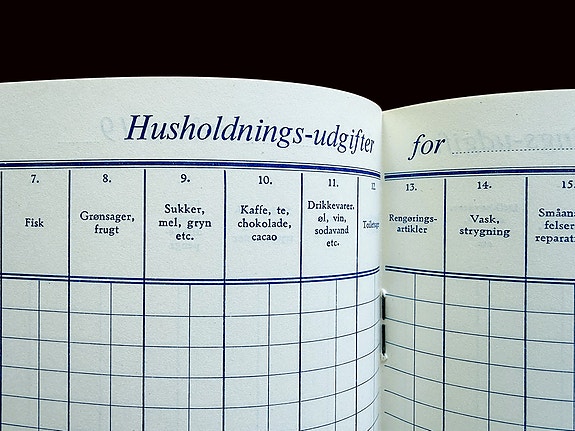 Husholdnings-udgifter for
7.
Fisk
8.
Grønsager,
frugt
9.
Sukker,
mel, gryn
etc.
10.
Kaffe, te,
chokolade,
cacao
11.
Drikkevarer,
øl, vin,
sodavand
etc.
12.
13.
Rengørings-
artikler
14.
Vask,
strygning
15.